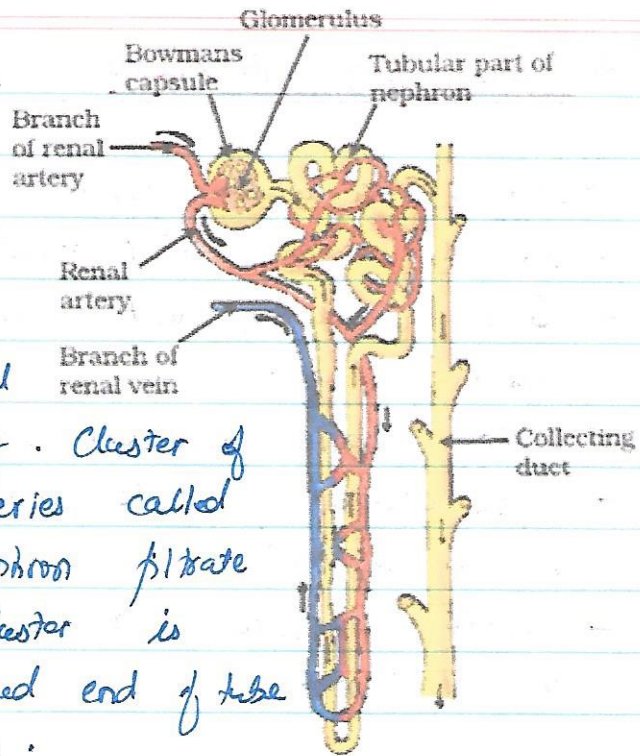 Glomerulus
Bowmans
capsule
Tubular part of
nephron
Branch
of renal
artery
Renal
artery
Branch of
renal vein
Collecting
duct
. Cluster of
eries called
phron filtrate
uster is
ed end of tube